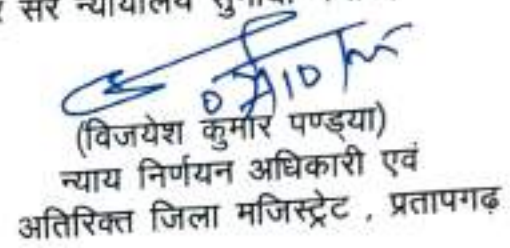 सरे न्यायालय सुनाया
(विजयेश कुमार पण्ड्या)
न्याय निर्णयन अधिकारी एवं
अतिरिक्त जिला मजिस्ट्रेट , प्रतापगढ़